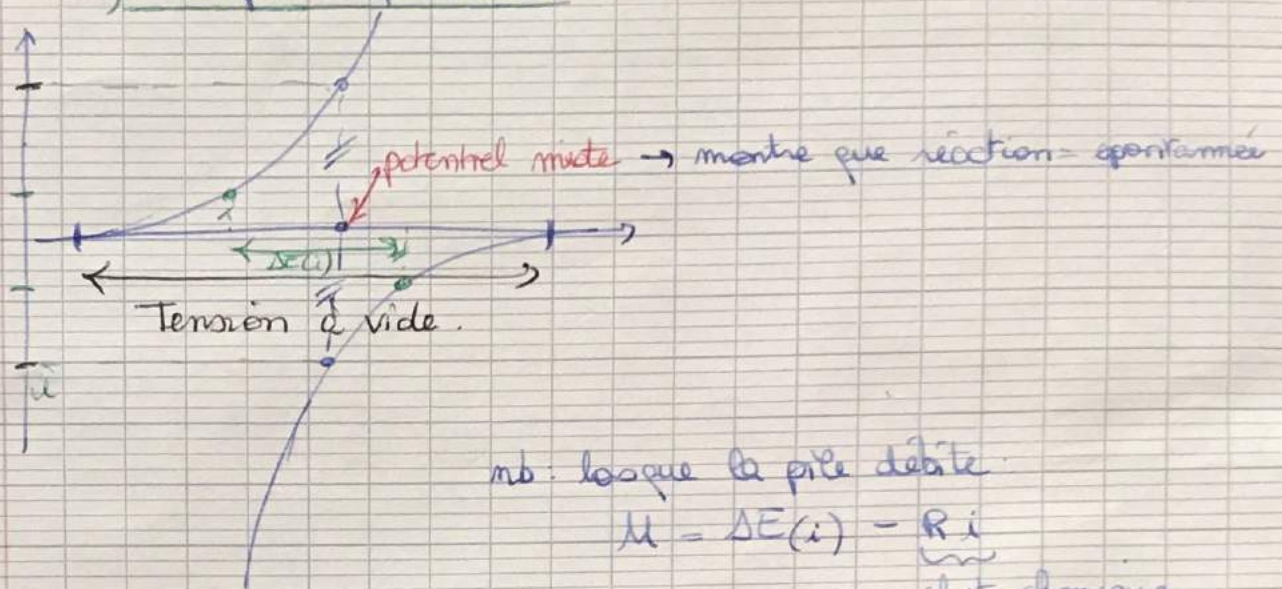 potentiel mixte → montre que réaction = spontannée
ΔE(i)
Tension à vide.
i
nb: losque la pile débite
U = ΔE(i) - Ri